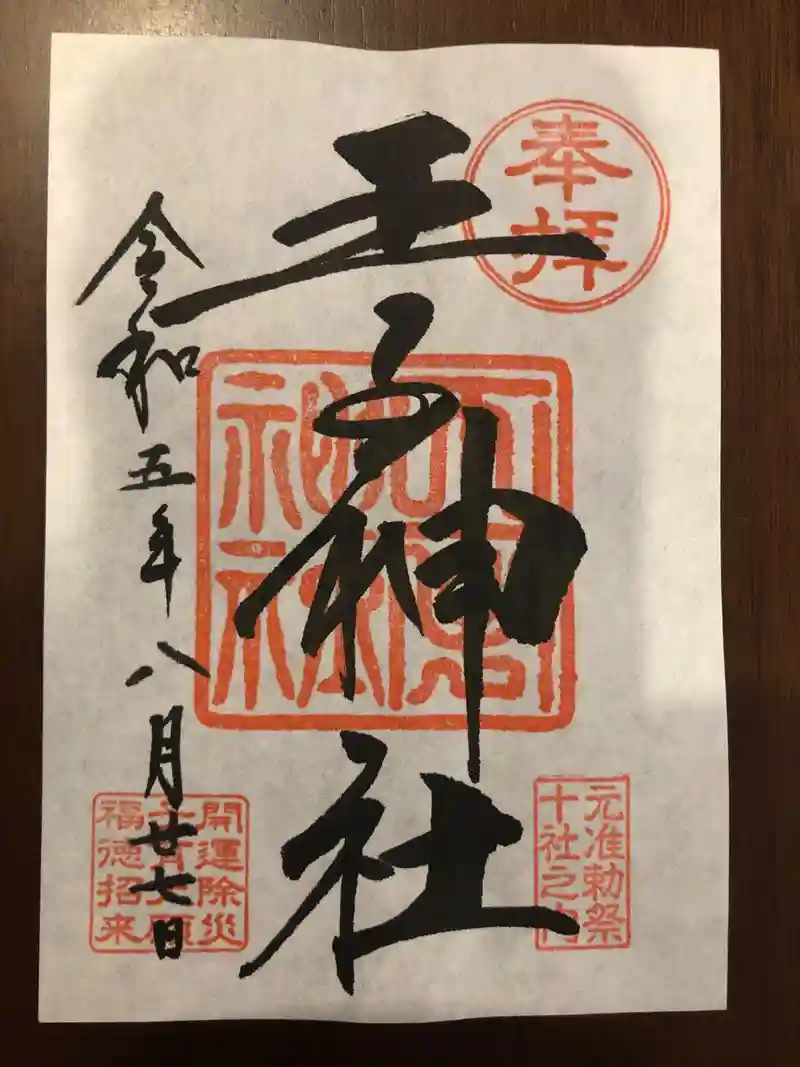 奉拝
元准勅祭
十社之内
王子神社
開運除災
子育大願
福徳招来
令和五年八月廿七日